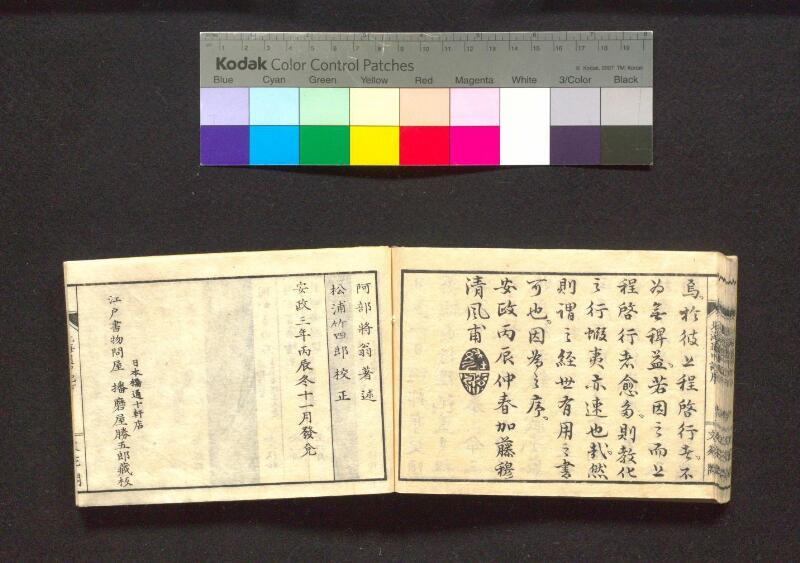 Kodak Color Control Patches
© Kodak, 2007 TM: Kodak
Blue Cyan Green Yellow Red Magenta White 3/Color Black
焉。於彼上程啓行者。不
為無稗益。若因之而上
程啓行者愈多。則教化
之行蝦夷亦速也哉。然
則謂之経世有用之書
可也。因為之序。
安政丙辰仲春加藤穆
清風甫
阿部將翁著述
松浦竹四郎校正
安政三年丙辰冬十一月發兌
日本橋通十軒店
江戸書物問屋 播磨屋勝五郎藏板